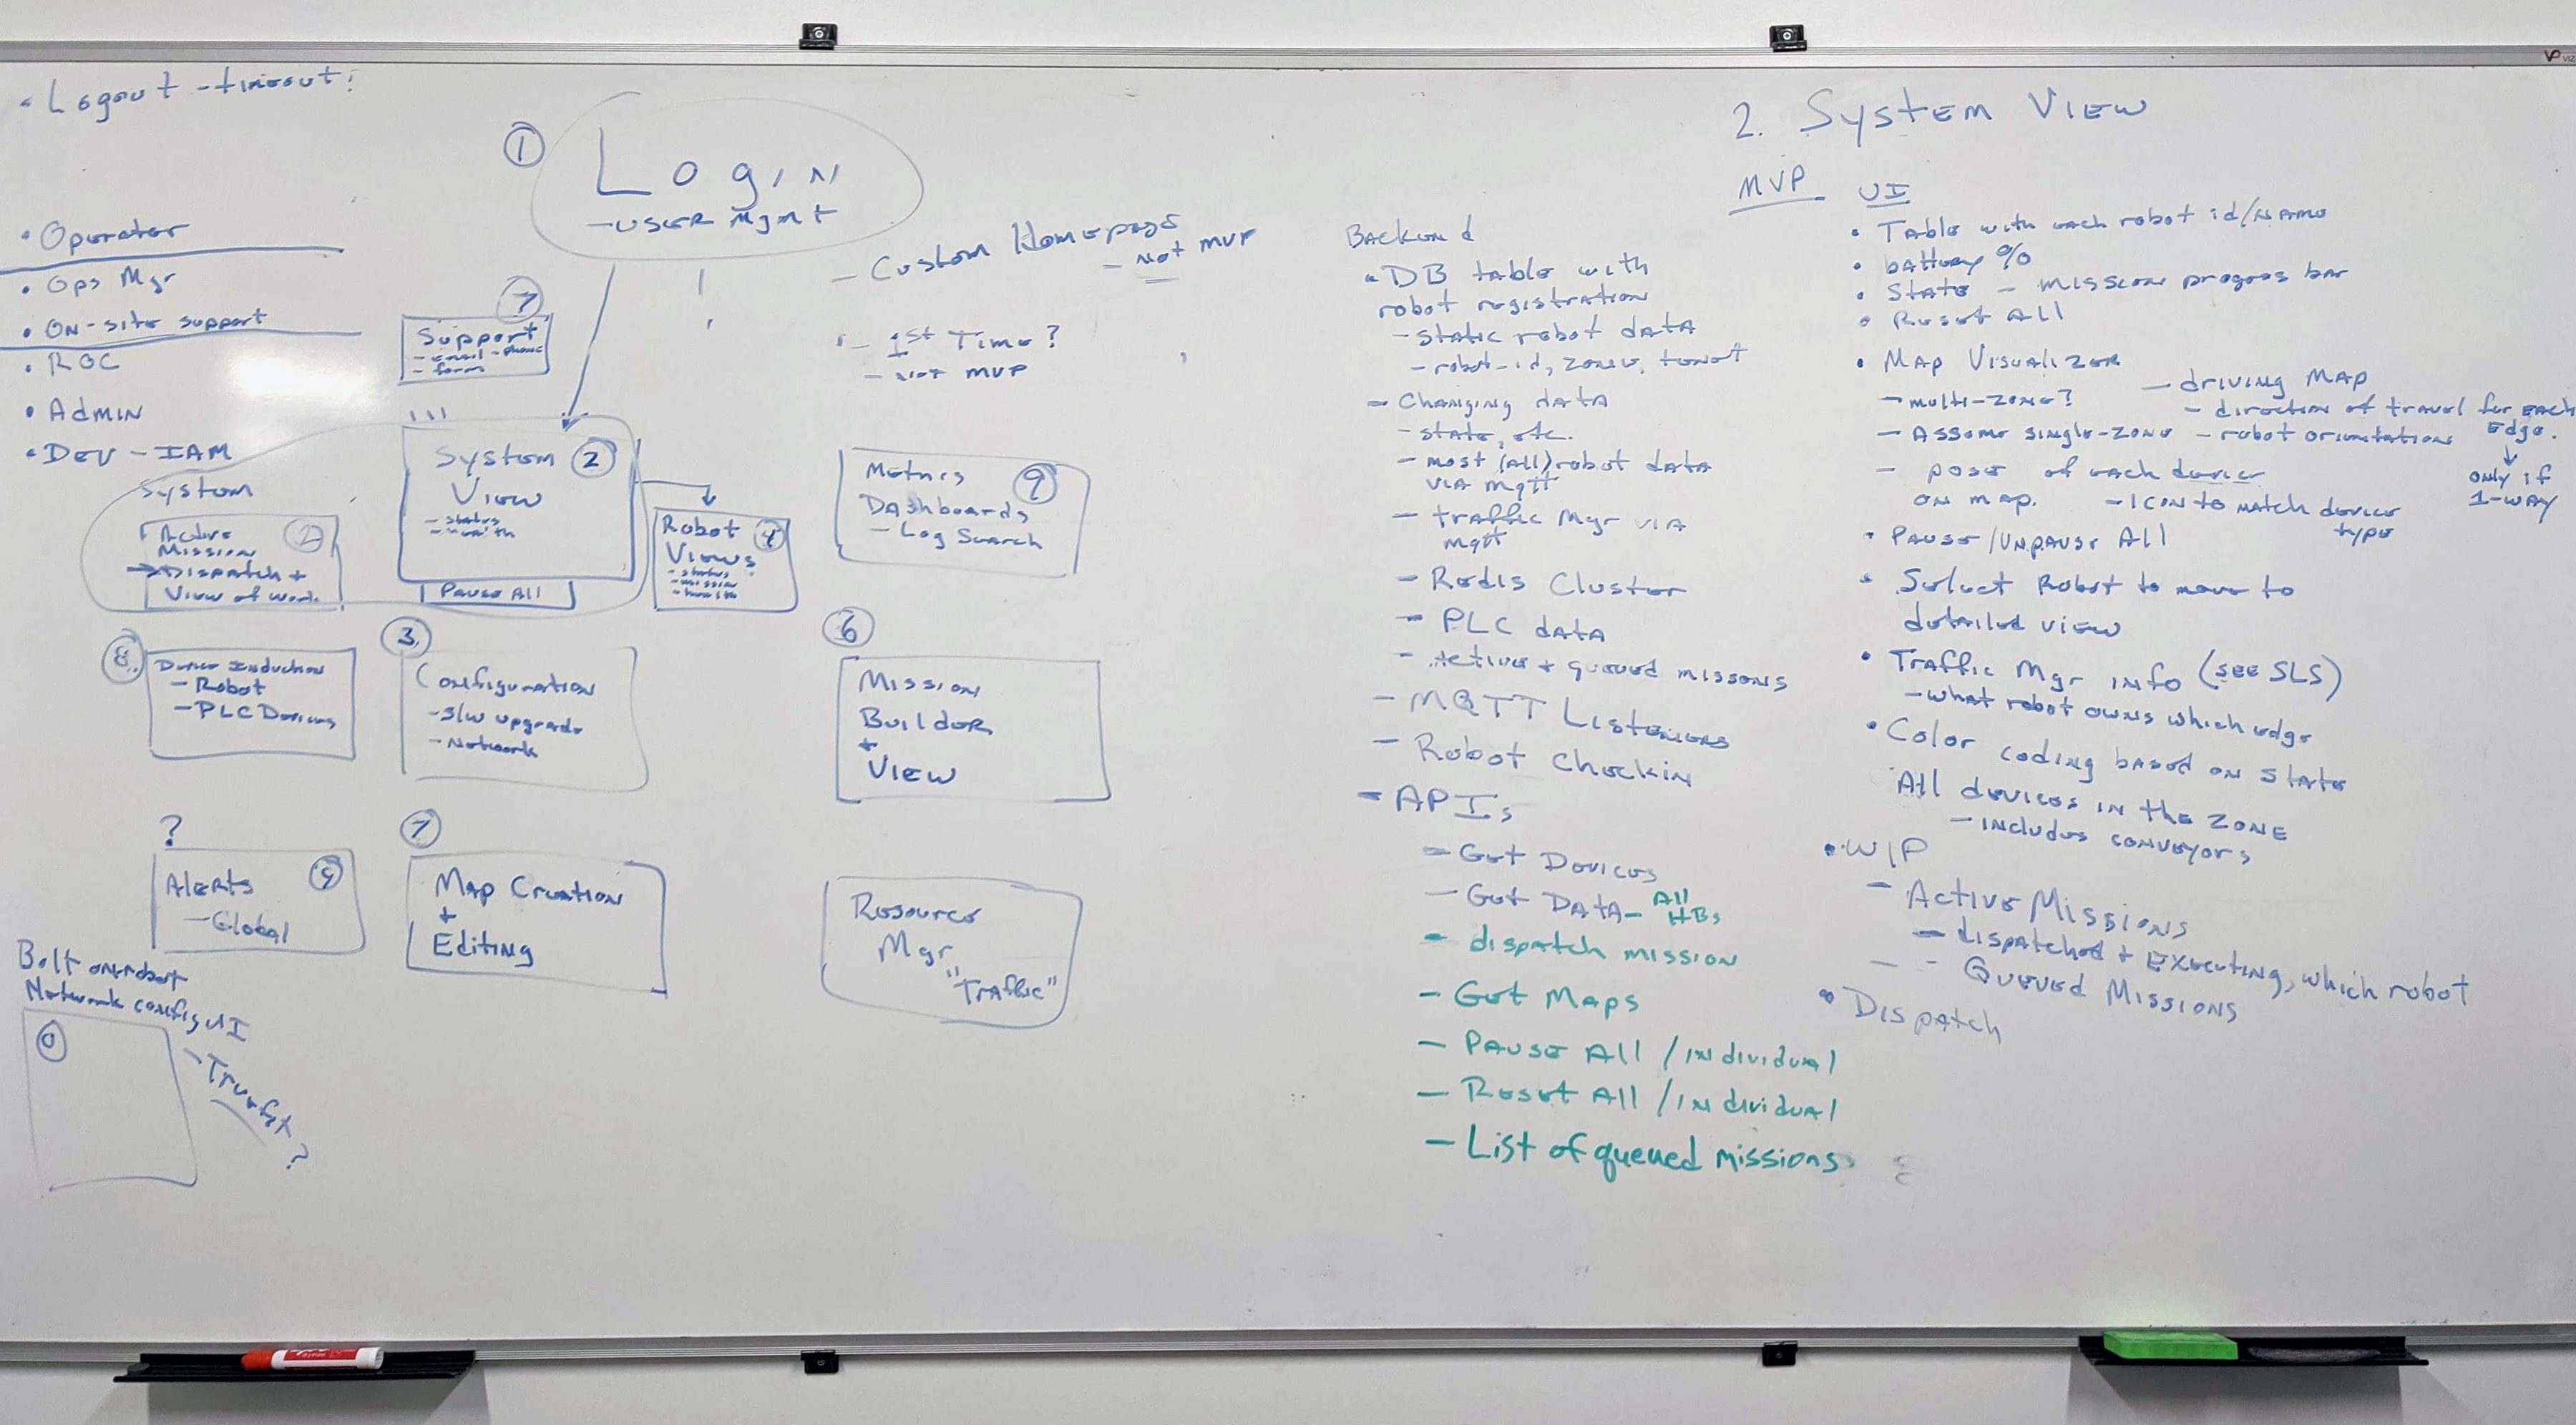 • Logout - timeout!
① Login
- User Mgmt
• Operator
• Ops Mgr
• ON-site support
• ROC
• Admin
• DEV - IAM
⑦
Support
- email - phone
- form
- Custom Homepage
- Not MVP
- 1st Time?
- Not MVP
System
Active ②
Mission
→ Dispatch +
View of work.
System ②
View
- status
- health
Pause All
Robot ④
Views
- status
- mission
- health
Metrics ⑨
Dashboards
- Log Search
⑧
Device Induction
- Robot
- PLC Devices
③
Configuration
- S/W upgrade
- Network
⑥
Mission
Builder
+
View
?
Alerts
- Global
⑦
Map Creation
+
Editing
Resource
Mgr
"Traffic"
Bolt on robot
Network config UI
⓪
- Truefit
?
Backend
• DB table with
robot registration
- static robot data
- robot-id, zone, tenet
- Changing data
- state, etc.
- most (all) robot data
via mqtt
- traffic Mgr via
mqtt
- Redis Cluster
- PLC data
- Active + queued missons
- MQTT Listeners
- Robot Checkin
- APIs
- Get Devices
- Get Data - All
HBs
- dispatch mission
- Get Maps
- Pause All / individual
- Reset All / individual
- List of queued missions
2. System View
MVP UI
• Table with each robot id/name
• battery %
• State - mission progress bar
• Reset All
• Map Visualizer
- multi-zone?
- Assume single-zone
- driving Map
- direction of travel for each
Edge.
↓
only if
1-way
- robot orientations
- pose of each device
on map.
- Icon to match device
type
• Pause/Unpause All
• Select Robot to move to
detailed view
• Traffic Mgr info (see SLS)
- what robot owns which edge
• Color coding based on state
All devices in the zone
- includes conveyors
• WIP
- Active Missions
- dispatched + Executing, which robot
- - Queued Missions
• Dispatch